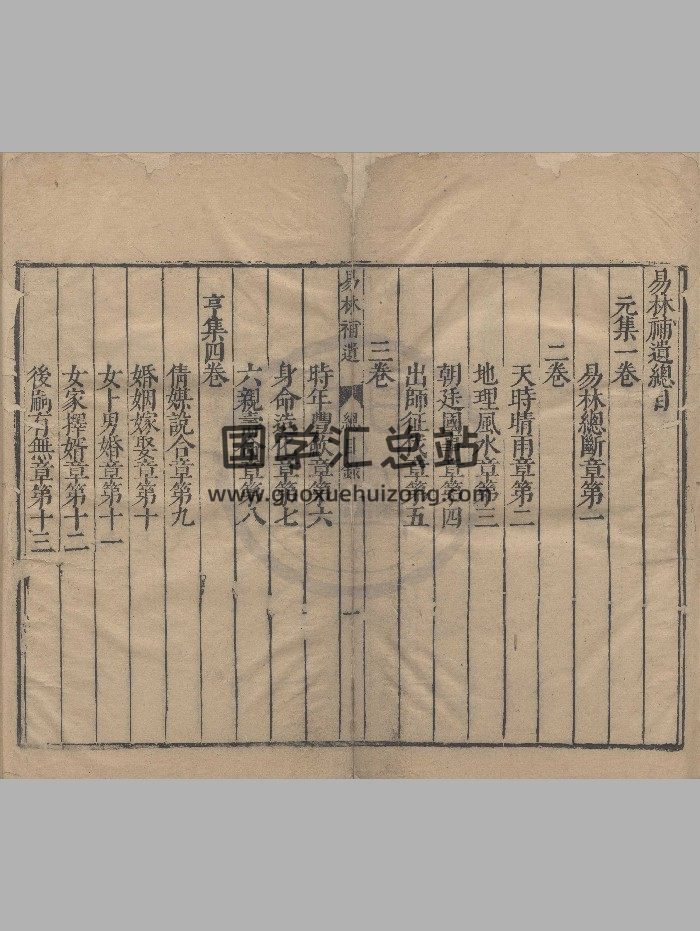 易林補遺總目
元集一卷
易林總斷章第一
二卷
天時晴雨章第二
地理風水章第三
朝廷國事章第四
出師征戰章第五
三卷
易林補遺 總目錄 一
時年豐歉章第六
身命造化章第七
六親章第八
亨集四卷
倩媒說合章第九
婚姻嫁娶章第十
女卜男婚章第十一
女家擇婿章第十二
後嗣有無章第十三
国学汇总站
www.guoxuehuizong.com